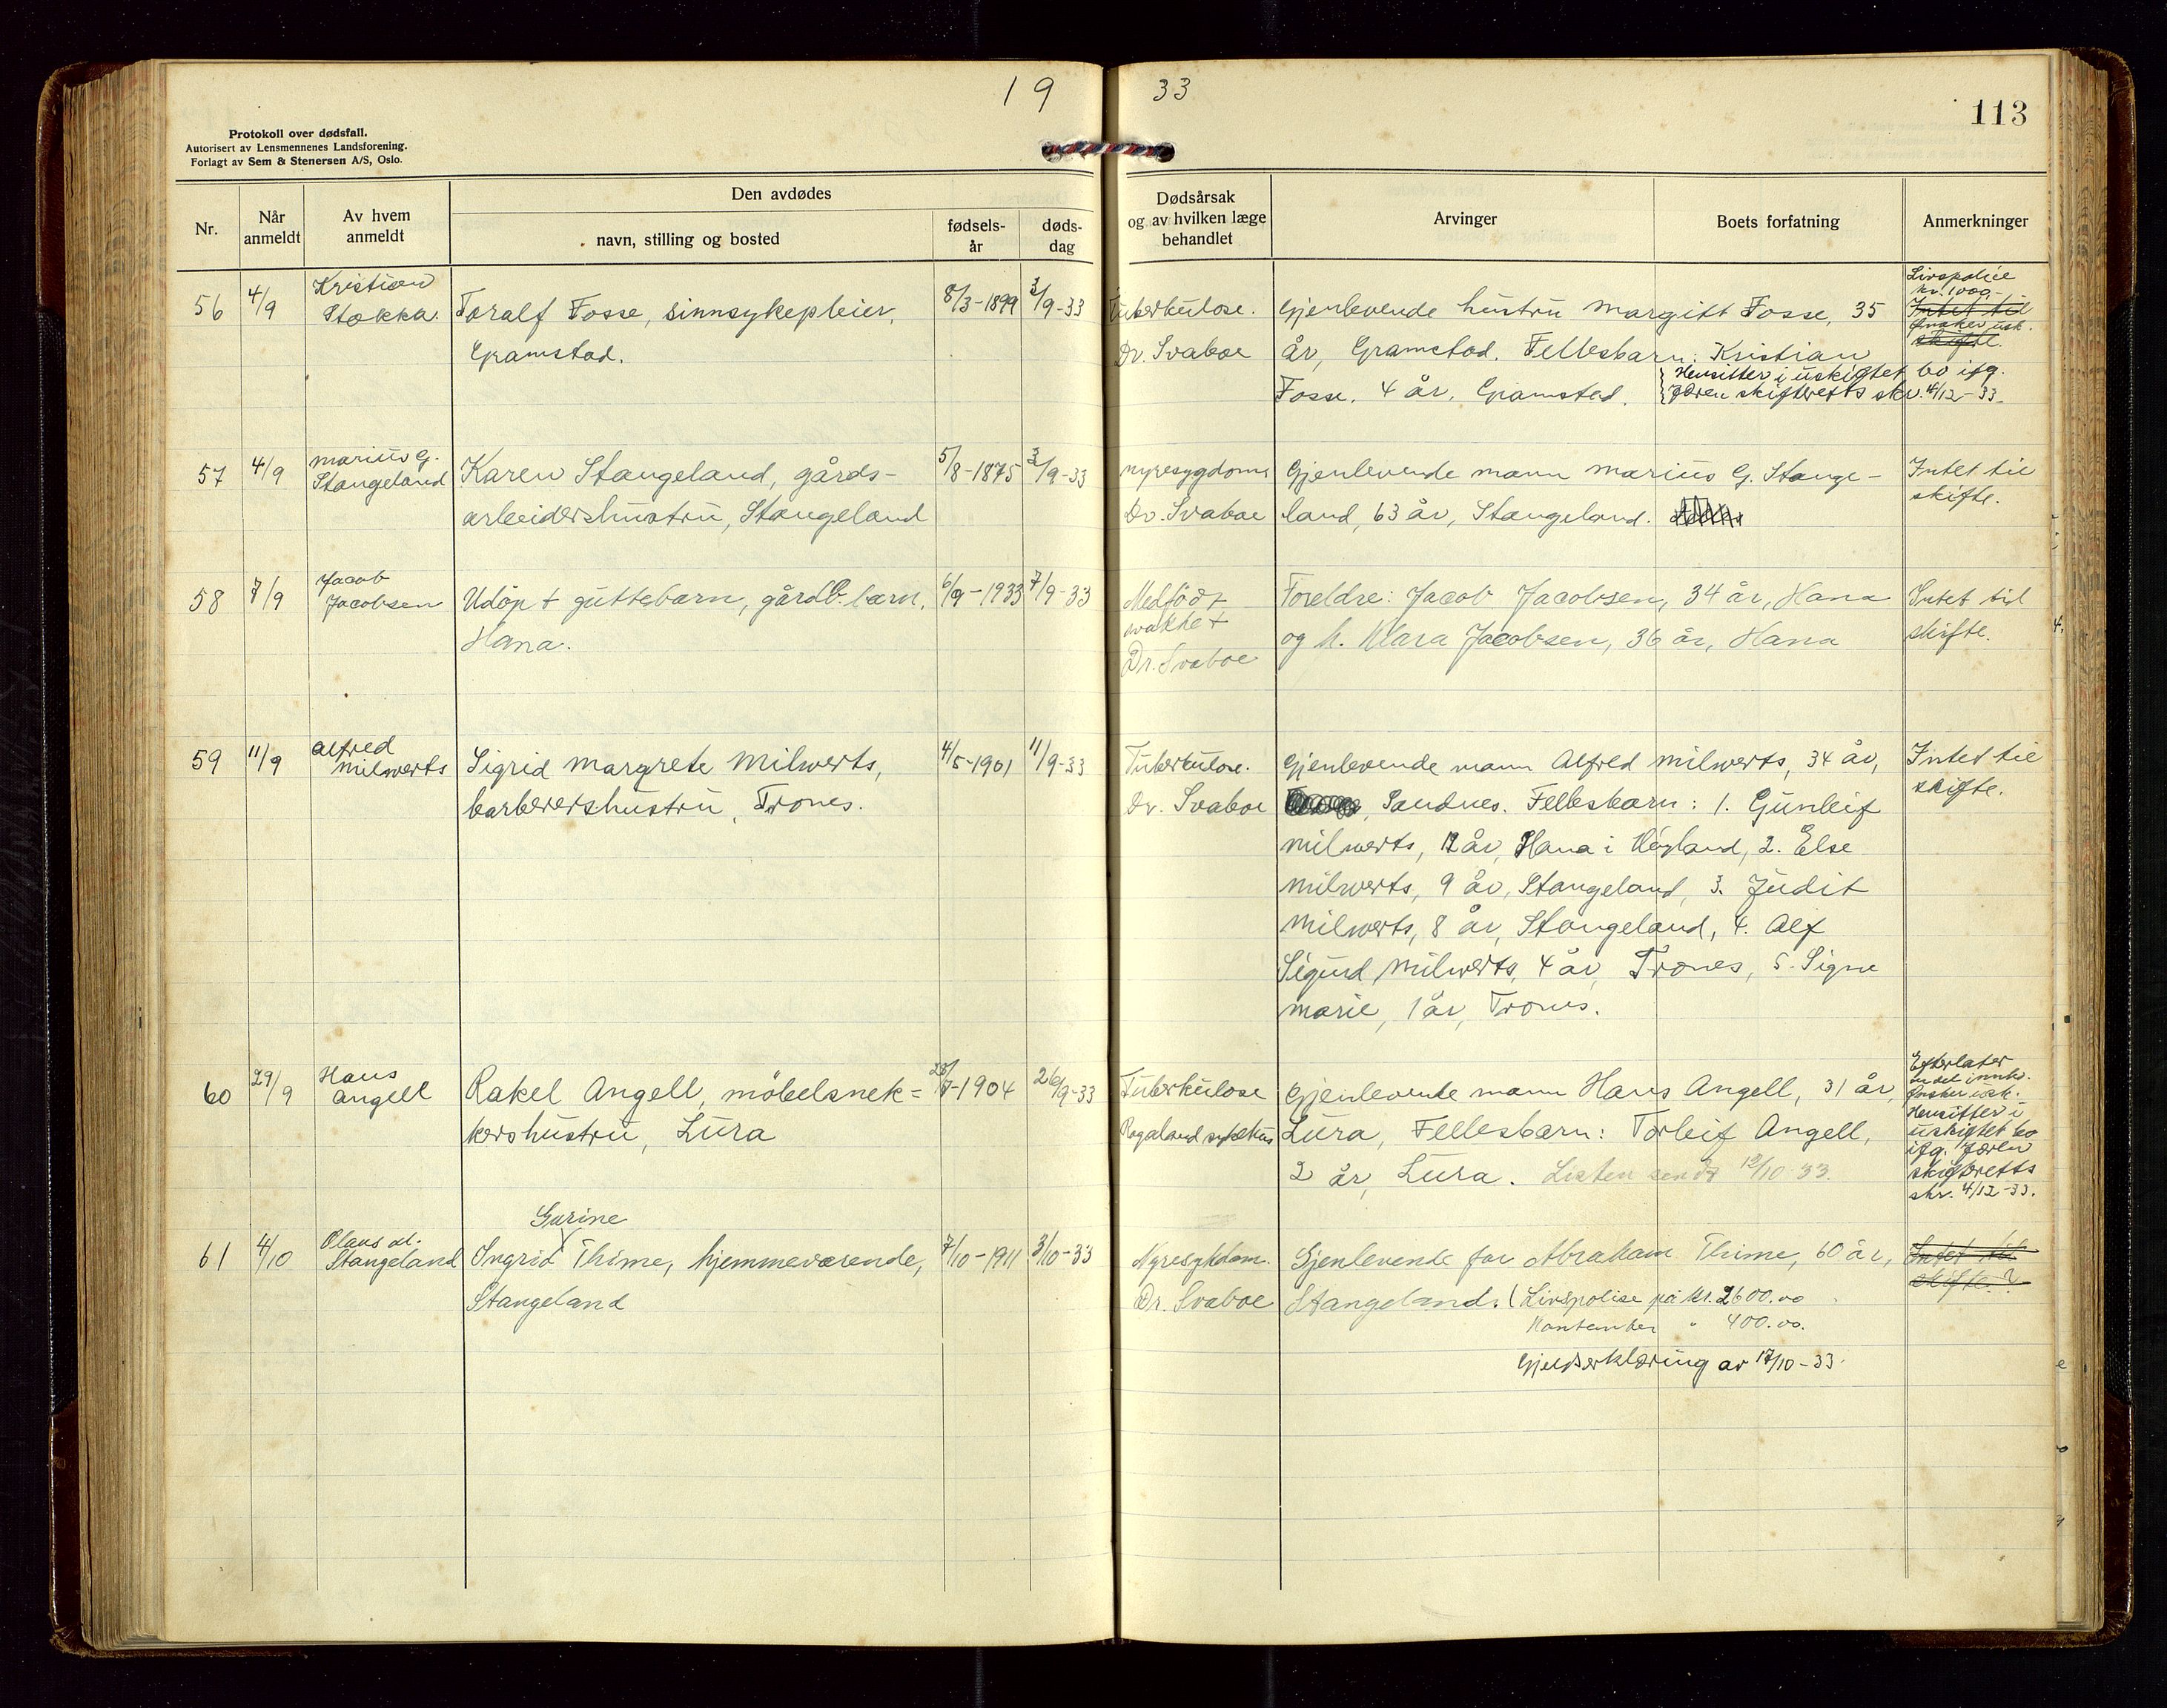 19 33
113
Protokoll over dødsfall.
Autorisert av Lensmennenes Landsforening.
Forlagt av Sem & Stenersen A/S, Oslo.
Nr.
Når anmeldt
Av hvem anmeldt
Den avdødes
navn, stilling og bosted
fødsels-år
døds-dag
Dødsårsak og av hvilken læge behandlet
Arvinger
Boets forfatning
Anmerkninger
56 4/9 Kristian Stokka
Toralf Fosse, sinnsykepleier, 8/3-1899 3/9-33
Gramstad.
Tuberkulose.
Dr. Svaboe
Gjenlevende hustru Margitt Fosse, 35
år, Gramstad. Fellesbarn: Kristian
Fosse, 4 år, Gramstad.
Hensitter i uskiftet bo ifg.
Jæren skifteretts skr. 4/12-33.
Livspolice
kr. 1000.-
Intet til
Ønsker usk.
skifte.
57 4/9 Marius G. Stangeland
Karen Stangeland, gårds- 5/8-1875 3/9-33
arbeidershustru, Stangeland
nyresygdom
Dr. Svaboe
Gjenlevende mann Marius G. Stange-
land, 63 år, Stangeland.
Intet til
skifte.
58 7/9 Jacob Jacobsen
Udöpt guttebarn, gårdb. barn, 6/9-1933 7/9-33
Hana.
Medfödt
svakhet
Dr. Svaboe
Foreldre: Jacob Jacobsen, 34 år, Hana
og h. Klara Jacobsen, 36 år, Hana
Intet til
skifte.
59 11/9 Alfred Milwerts
Sigrid Margrete Milwerts, 4/5-1901 11/9-33
barberershustru, Trones.
Tuberkulose.
Dr. Svaboe
Gjenlevende mann Alfred Milwerts, 34 år,
Sandnes. Fellesbarn: 1. Gunleif
Milwerts, 12 år, Hana i Høyland, 2. Else
Milwerts, 9 år, Stangeland, 3. Judit
Milwerts, 8 år, Stangeland, 4. Alf
Sigurd Milwerts, 4 år, Trones, 5. Signe
Marie, 1 år, Trones.
Intet til
skifte.
60 29/9 Hans Angell
Rakel Angell, möbelsnek= 1904 26/9-33
kershustru, Lura
Tuberkulose
Rogaland sykehus
Gjenlevende mann Hans Angell, 31 år,
Lura, Fellesbarn: Torleif Angell,
2 år, Lura. Listen sendt 12/10-33.
Efterlater
endel innbo.
Ønsker usk.
Hensitter i
uskiftet bo
ifg. Jæren
skifteretts
skr. 4/12-33.
61 4/10 Olaus M. Stangeland
Gurine
Ingrid Thime, hjemmeværende, 7/10-1911 3/10-33
Stangeland
Nyresykdom.
Dr. Svaboe
Gjenlevende far Abraham Thime, 60 år,
Stangeland. (Livspolise på kr. 2600.00
Kontanter " 400.00.
Gjeldserklæring av 17/10-33.
Intet til
skifte.?